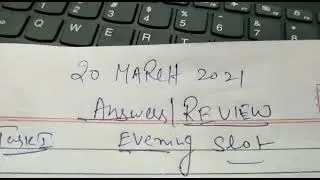 20 MARCH 2021
Answers/REVIEW
Task I Evening Slot